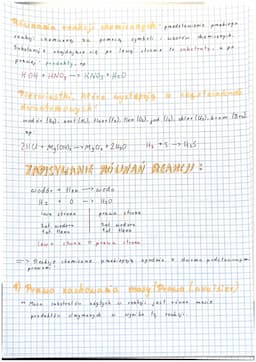 Równania reakcji chemicznych - przedstawienie przebiegu
reakcji chemicznej za pomocą symboli i wzorów chemicznych.
Substancje znajdujące się po lewej stronie to substraty, a po
prawej - produkty, np.
KOH + HNO₃ → KNO₃ + H₂O
Pierwiastki, które występują w cząsteczkach
dwuatomowych:
wodór (H₂), azot (N₂), fluor (F₂), tlen (O₂), jod (I₂), chlor (Cl₂), brom (Br₂)
np.
H₂ + S → H₂S
ZAPISYWANIE RÓWNAŃ REAKCJI:
wodór + tlen → woda
H₂ + O → H₂O
lewa strona | prawa strona
2at. wodoru | 2at. wodoru
1at. tlenu | 1at. tlenu
lewa strona = prawa strona
=> Reakcje chemiczne przebiegają zgodnie z dwoma podstawowymi
prawami:
1) Prawo zachowania masy (Prawo Lavoisier)
Masa substratów użytych w reakcji jest równa masie
produktów otrzymanych w wyniku tej reakcji.